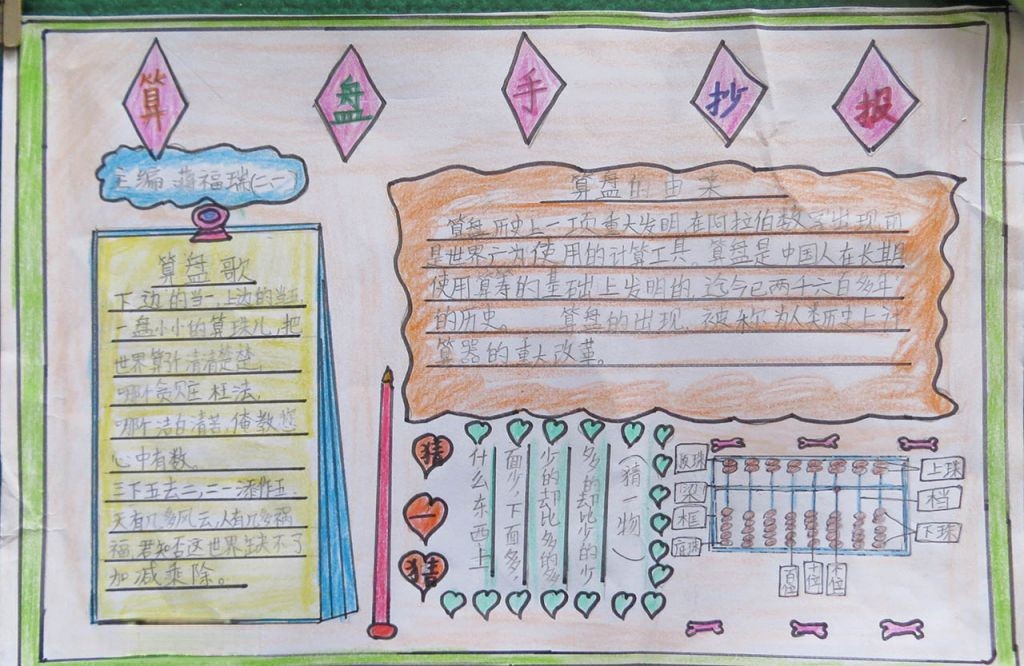 算盘手抄报
主编 蒋福瑞(二、一)
算盘歌
下边的当一,上边的当五
一盘小小的算珠儿,把
世界算计清清楚楚,
哪个贪赃枉法,
哪个洁白清苦,俺教您
心中有数。
三下五去二,二一添作五
天有几多风云,人有几多祸
福,君知否这世界缺不了
加减乘除。
算盘的由来
算盘历史上一项重大发明,在阿拉伯数字出现前
是世界广为使用的计算工具。算盘是中国人在长期
使用算筹的基础上发明的,迄今已两千六百多年
的历史。 算盘的出现,被称为人类历史上计
算器的重大改革。
猜一猜
(猜一物)
多的却比少的少
少的却比多的多
面少,下面多,
什么东西上
梁
框
上珠
档
下珠
百位
十位
个位